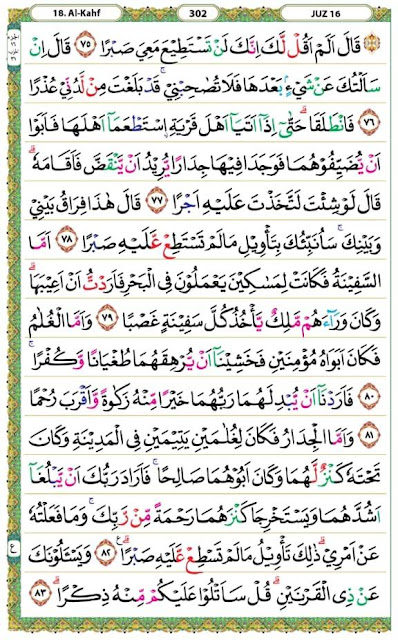 18. Al-Kahf
302
JUZ 16
قَالَ اَلَمْ اَقُلْ لَّكَ اِنَّكَ لَنْ تَسْتَطِيْعَ مَعِيَ صَبْرًا ٧٥ قَالَ اِنْ
سَاَلْتُكَ عَنْ شَيْءٍۢ بَعْدَهَا فَلَا تُصٰحِبْنِيْۚ قَدْ بَلَغْتَ مِنْ لَّدُنِّيْ عُذْرًا
٧٦ فَانْطَلَقَاۗ حَتّٰىٓ اِذَآ اَتَيَآ اَهْلَ قَرْيَةِ ِۨاسْتَطْعَمَآ اَهْلَهَا فَاَبَوْا
اَنْ يُّضَيِّفُوْهُمَا فَوَجَدَا فِيْهَا جِدَارًا يُّرِيْدُ اَنْ يَّنْقَضَّ فَاَقَامَهٗۗ
قَالَ لَوْ شِئْتَ لَتَّخَذْتَ عَلَيْهِ اَجْرًا ٧٧ قَالَ هٰذَا فِرَاقُ بَيْنِيْ
وَبَيْنِكَۚ سَاُنَبِّئُكَ بِتَأْوِيْلِ مَا لَمْ تَسْتَطِعْ عَّلَيْهِ صَبْرًا ٧٨ اَمَّا
السَّفِيْنَةُ فَكَانَتْ لِمَسٰكِيْنَ يَعْمَلُوْنَ فِى الْبَحْرِ فَاَرَدْتُّ اَنْ اَعِيْبَهَاۗ
وَكَانَ وَرَاۤءَهُمْ مَّلِكٌ يَّأْخُذُ كُلَّ سَفِيْنَةٍ غَصْبًا ٧٩ وَاَمَّا الْغُلٰمُ
فَكَانَ اَبَوٰهُ مُؤْمِنَيْنِ فَخَشِيْنَآ اَنْ يُّرْهِقَهُمَا طُغْيَانًا وَّكُفْرًاۚ
٨٠ فَاَرَدْنَآ اَنْ يُّبْدِلَهُمَا رَبُّهُمَا خَيْرًا مِّنْهُ زَكٰوةً وَّاَقْرَبَ رُحْمًا
٨١ وَاَمَّا الْجِدَارُ فَكَانَ لِغُلٰمَيْنِ يَتِيْمَيْنِ فِى الْمَدِيْنَةِ وَكَانَ
تَحْتَهٗ كَنْزٌ لَّهُمَا وَكَانَ اَبُوْهُمَا صَالِحًاۚ فَاَرَادَ رَبُّكَ اَنْ يَّبْلُغَآ
اَشُدَّهُمَا وَيَسْتَخْرِجَا كَنْزَهُمَا رَحْمَةً مِّنْ رَّبِّكَۚ وَمَا فَعَلْتُهٗ
عَنْ اَمْرِيْۗ ذٰلِكَ تَأْوِيْلُ مَا لَمْ تَسْطِعْ عَّلَيْهِ صَبْرًاۗ ٨٢ وَيَسْـَٔلُوْنَكَ
عَنْ ذِى الْقَرْنَيْنِۗ قُلْ سَاَتْلُوْا عَلَيْكُمْ مِّنْهُ ذِكْرًاۗ ٨٣